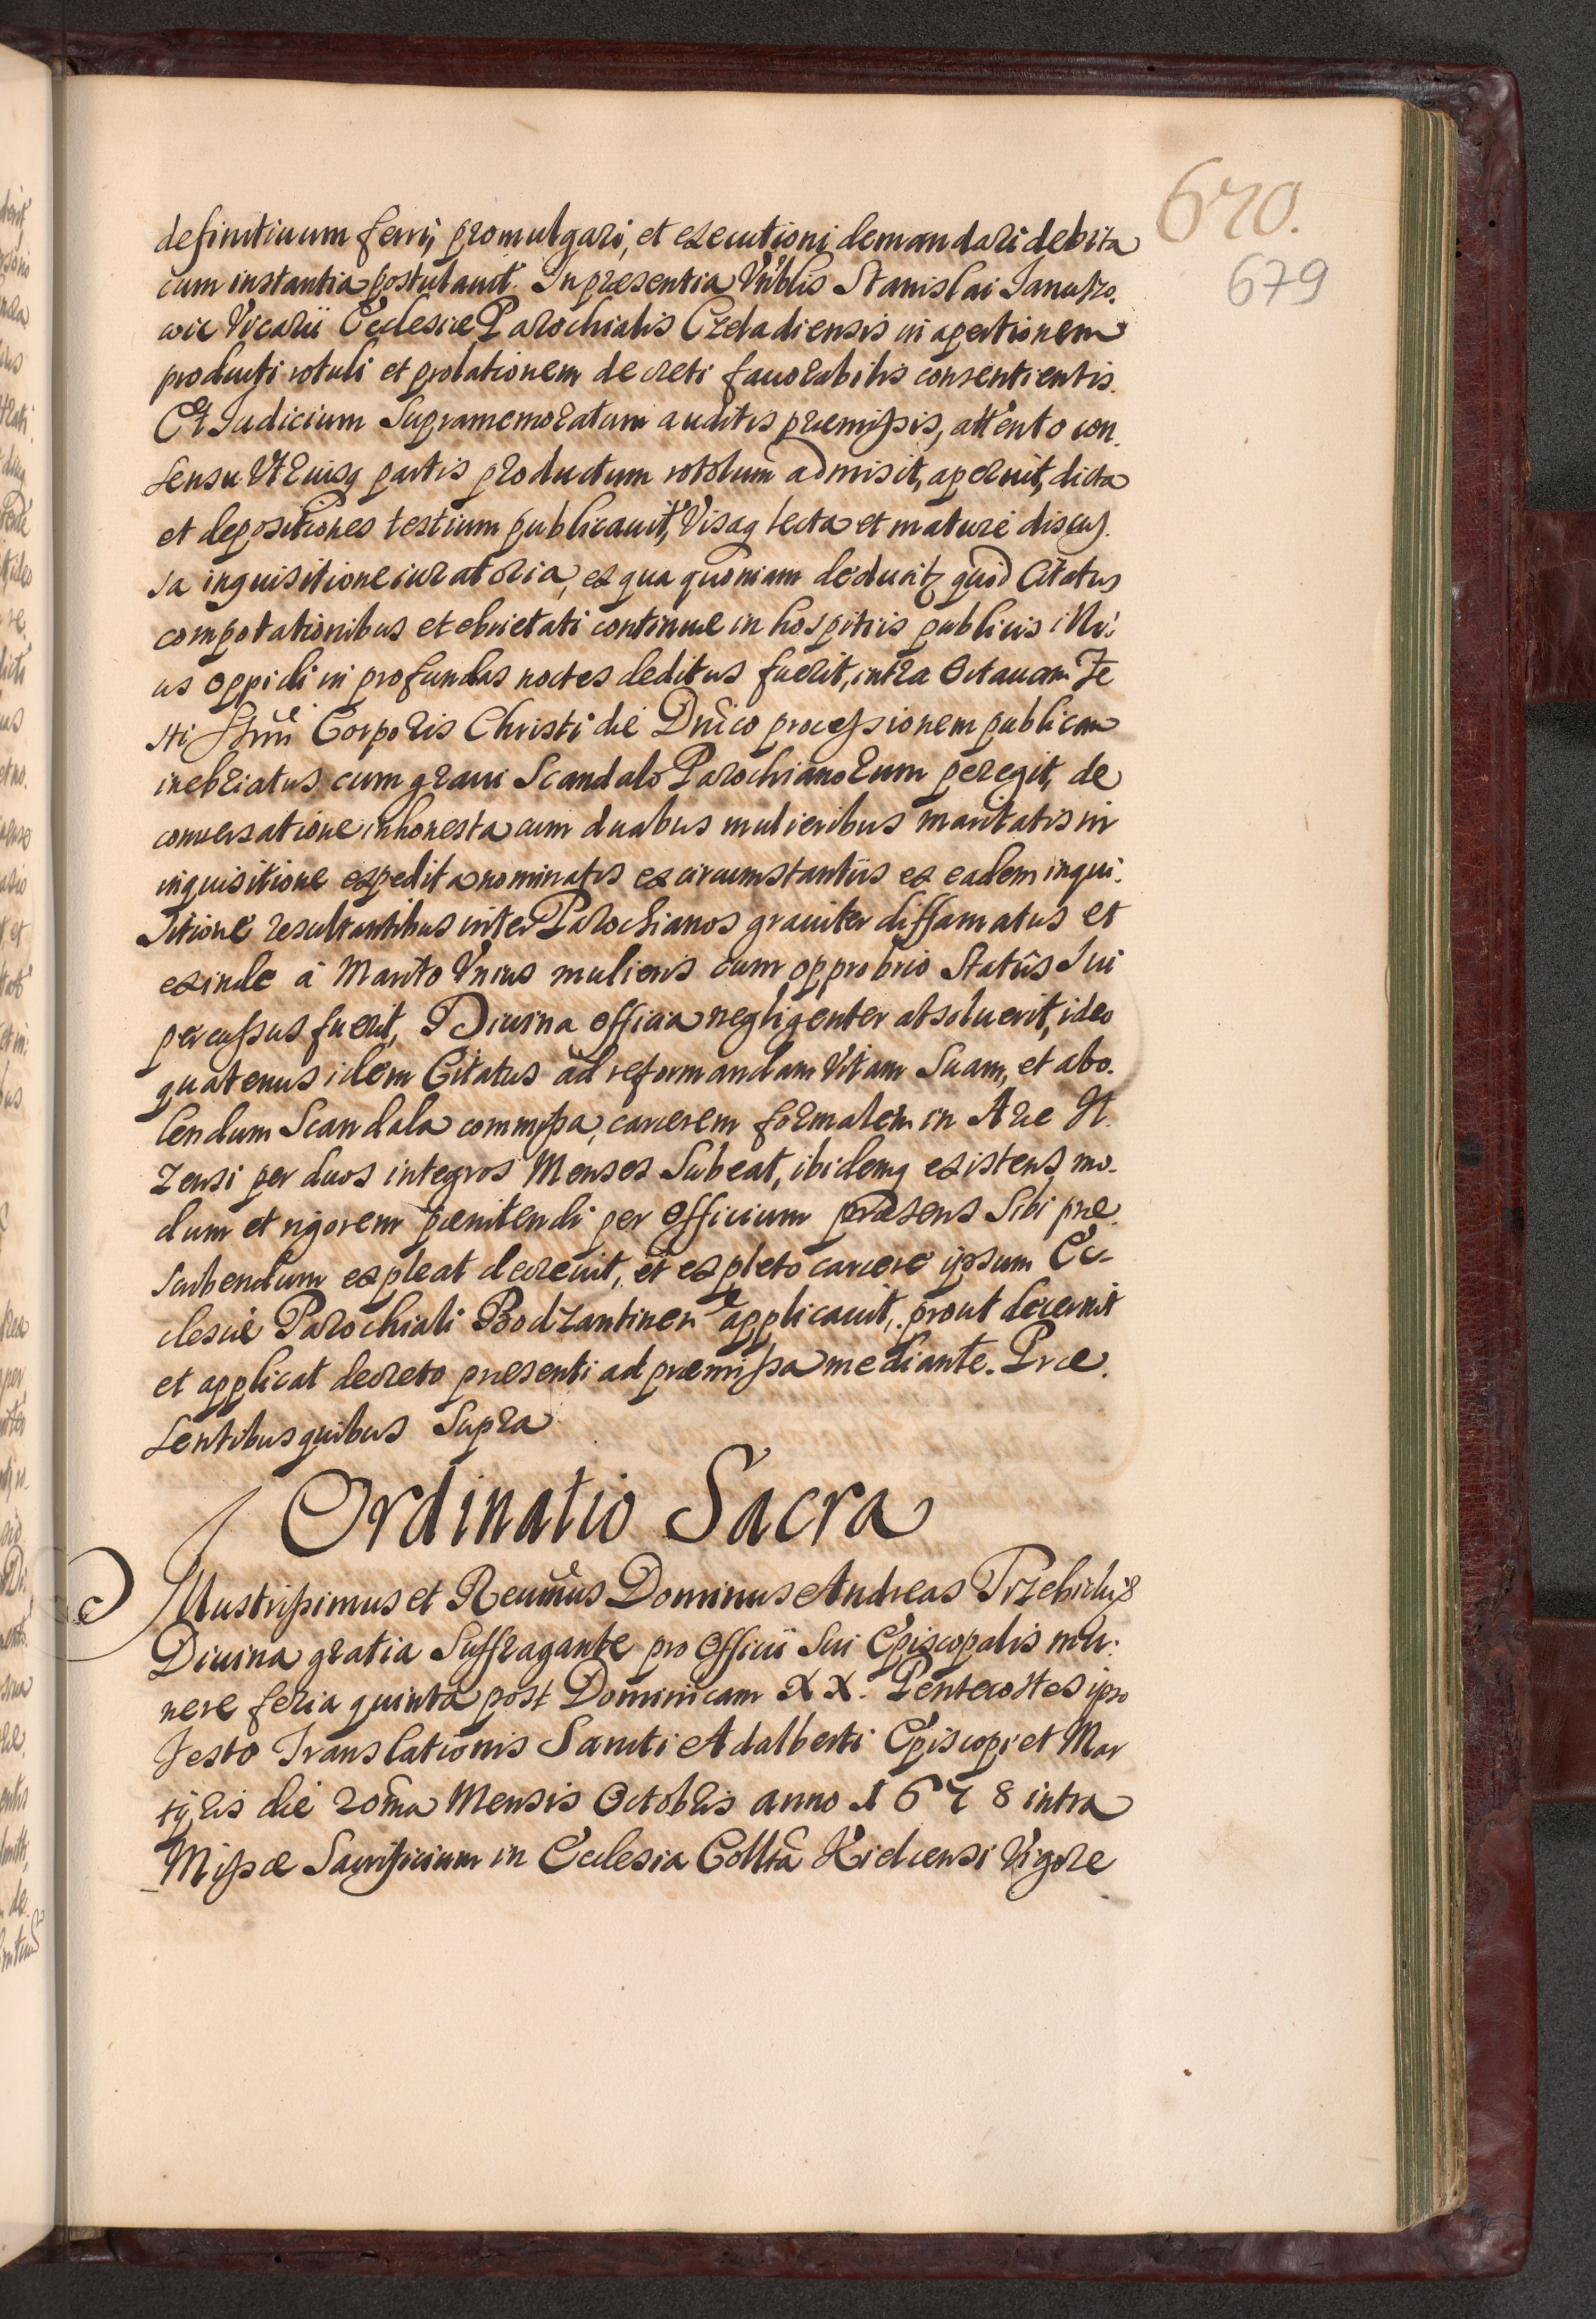 670.
679
definitiuum ferri, promulgari, et executioni demandari debita
cum instantia postulauit. In præsentia Vnblis Stanislai Januszo.
wic Vicarii Ecclesiæ Parochialis Czeladiensis in apertionem
producti rotuli et prolationem decreti fauorabilis consentientis.
Et Judicium Supramemoratum auditis præmissis, attento con.
sensu Vtriusq partis productum rotolum admisit, aperuit, dicta
et depositiones testium publicauit, Visaq lecta et maturè discus.
sa inquisitione iuratoria, ex qua quoniam deducitz quòd Citatus
compotationibus et ebrietati continuè in hospitiis publicis illi:
us oppidi in profundas noctes deditus fuerit, intra Octauam Fe
sti Ssmi Corporis Christi die Dnico processionem publicam
inebriatus cum graui Scandalo Parochianorum peregit, de
conuersatione inhonesta cum duabus mulieribus maritatis in
inquisitione expedita nominatis ex circumstantiis ex eadem inqui.
sitione resultantibus inter Parochianos grauiter diffamatus et
exinde à Marito Vnius mulieris cum opprobrio Statûs Sui
percussus fuerit, Diuina officia negligenter absoluerit, ideo
quatenus idem Citatus ad reformandam Vitam Suam, et abo.
lendum Scandala commissa, carcerem formalem in Arce Il.
zensi per duos integros Menses Subeat, ibidemq existens, mo.
dum et rigorem pænitendi per Officium præsens Sibi præ
scribendum expleat decreuit, et expleto carcere ipsum Ec-
clesiæ Parochiali Bodzantinen applicauit, prout decernit
et applicat decreto præsenti ad præmissa mediante. Præ.
sentibus quibus Supra
Ordinatio Sacra
Illustrissimus et Reumus Dominus Andreas Trzebicki
Diuina gratia Suffragante pro Officii Sui Episcopalis mu:
nere feria quinta post Dominicam XX. Pentecostes ipso
Festo Translationis Sancti Adalberti Episcopi et Mar
tyris die 20ma Mensis Octobris anno 1678 intra
Missæ Sacrificium in Ecclesia Collta Kielcensi Vigore